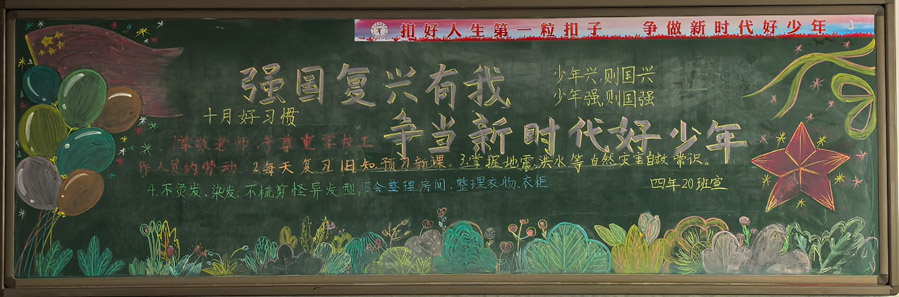 扣好人生第一粒扣子 争做新时代好少年
强国复兴有我
少年兴,则国兴
少年强,则国强
十月好习惯
争当新时代好少年
老师,尊重学校工
作人员的劳动 2.每天复习旧知预习新课。3.掌握地震,洪水等自然灾害自救常识。
4.不烫发,染发,不梳剪怪异发型。会整理房间,整理衣物,衣柜
四年20班宣